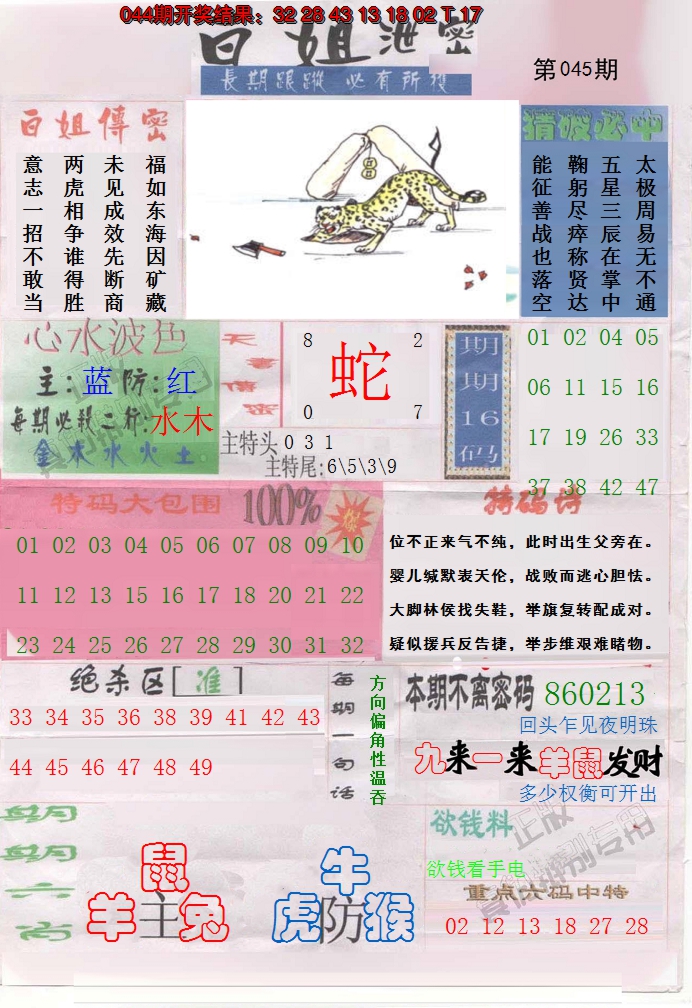 044期开奖结果：32 28 43 13 18 02 T 17
白姐泄密
長期跟蹤 必有所獲
第045期
白姐傳密
福如东海因矿藏
未见成效先断商
两虎相争谁得胜
意志一招不敢当
猜波必中
太极周易无不通
五星三辰在掌中
鞠躬尽瘁称贤达
能征善战也落空
心水波色
主：蓝防：红
每期必殺二行：水木
金木水火土
8 2
蛇
0 7
主特头 0 3 1
主特尾：6\5\3\9
期期16码
01 02 04 05
06 11 15 16
17 19 26 33
37 38 42 47
特码大包围 100%
01 02 03 04 05 06 07 08 09 10
11 12 13 15 16 17 18 20 21 22
23 24 25 26 27 28 29 30 31 32
特码诗
位不正来气不纯，此时出生父旁在。
婴儿缄默表天伦，战败而逃心胆怯。
大脚林侯找失鞋，举旗复转配成对。
疑似援兵反告捷，举步维艰难睹物。
绝杀区[准]
33 34 35 36 38 39 41 42 43
44 45 46 47 48 49
每期一句话
方向偏角性温吞
本期不离密码 860213
回头乍见夜明珠
九来一来羊鼠发财
多少权衡可开出
期期六肖
鼠
羊主兔
牛
虎防猴
欲钱料
欲钱看手电
重点六码中特
02 12 13 18 27 28